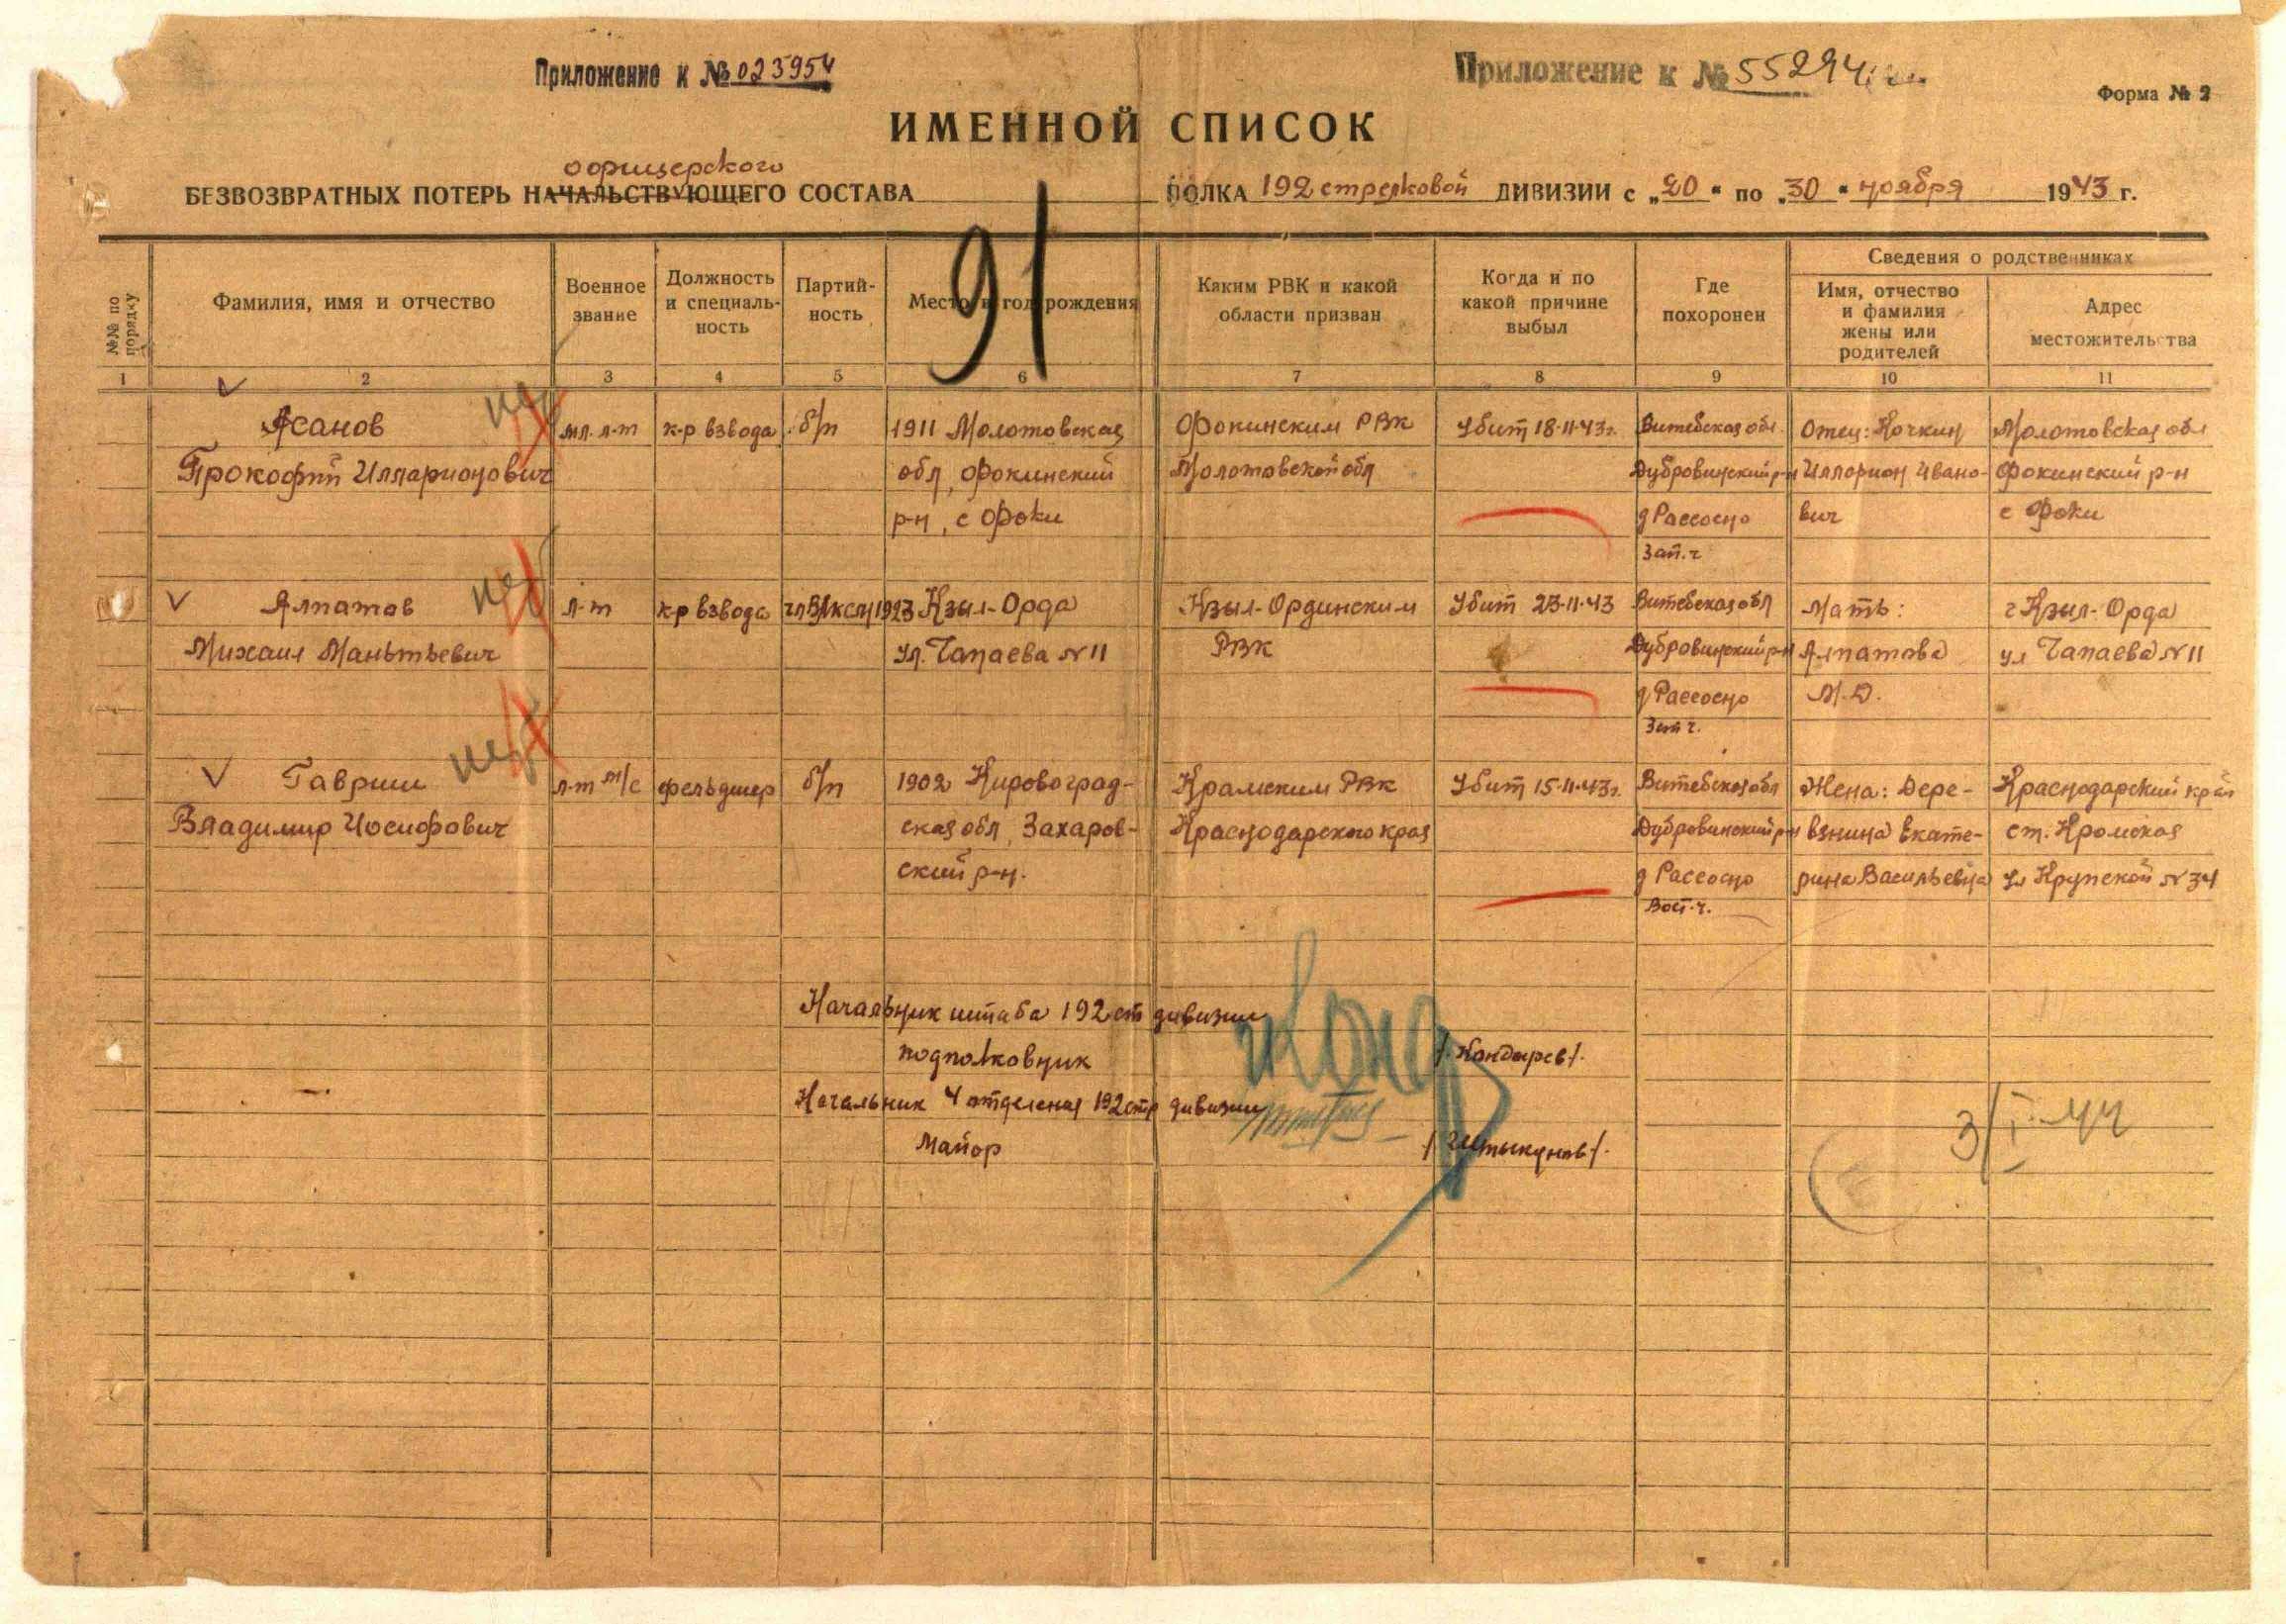 Приложение к № 023954
Приложение к № 55294
Форма № 2
ИМЕННОЙ СПИСОК
офицерского
БЕЗВОЗВРАТНЫХ ПОТЕРЬ НАЧАЛЬСТВУЮЩЕГО СОСТАВА ПОЛКА 192 стрелковой ДИВИЗИИ с „20" по „30" ноября 1943 г.
91
№№ по порядку
Фамилия, имя и отчество
Военное звание
Должность и специальность
Партийность
Место и год рождения
Каким РВК и какой области призван
Когда и по какой причине выбыл
Где похоронен
Сведения о родственниках
Имя, отчество и фамилия жены или родителей
Адрес местожительства
1 2 3 4 5 6 7 8 9 10 11
Асанов мл. л-т к-р взвода б/п 1911 Молотовская Фокинским РВК Убит 18.11.43г. Витебская обл. Отец: Молотовская обл
Прокофий Илларионович обл, Фокинский Молотовской обл Дубровинский р-н Илларион Ивано- Фокинский р-н
р-н, с Фоки д Рассосно вич с Фоки
Зап. ч
Алпатов л-т к-р взвода чл ВЛКСМ 1923 Кзыл-Орда Кзыл-Ординским Убит 23.11.43 Витебская обл Мать: г Кзыл-Орда
Михаил ул. Чапаева №11 РВК Дубровинский р-н Алпатова ул Чапаева №11
д Рассосно М.Д.
Зап ч.
Гавриш л-т м/с фельдшер б/п 1902 Кировоград- Крамским РВК Убит 15.11.43г. Витебская обл Жена: Дере- Краснодарский край
Владимир Иосифович ская обл, Захаров- Краснодарского края Дубровинский р-н взнина Екате- ст. Кромская
ский р-н. д Рассосно рина Васильевна ул Крупской №34
Вост. ч.
Начальник штаба 192 ст дивизии
подполковник /Кондырев/.
Начальник 4 отделения 192 стр дивизии
Майор /Штыкунов/.
3/I-44